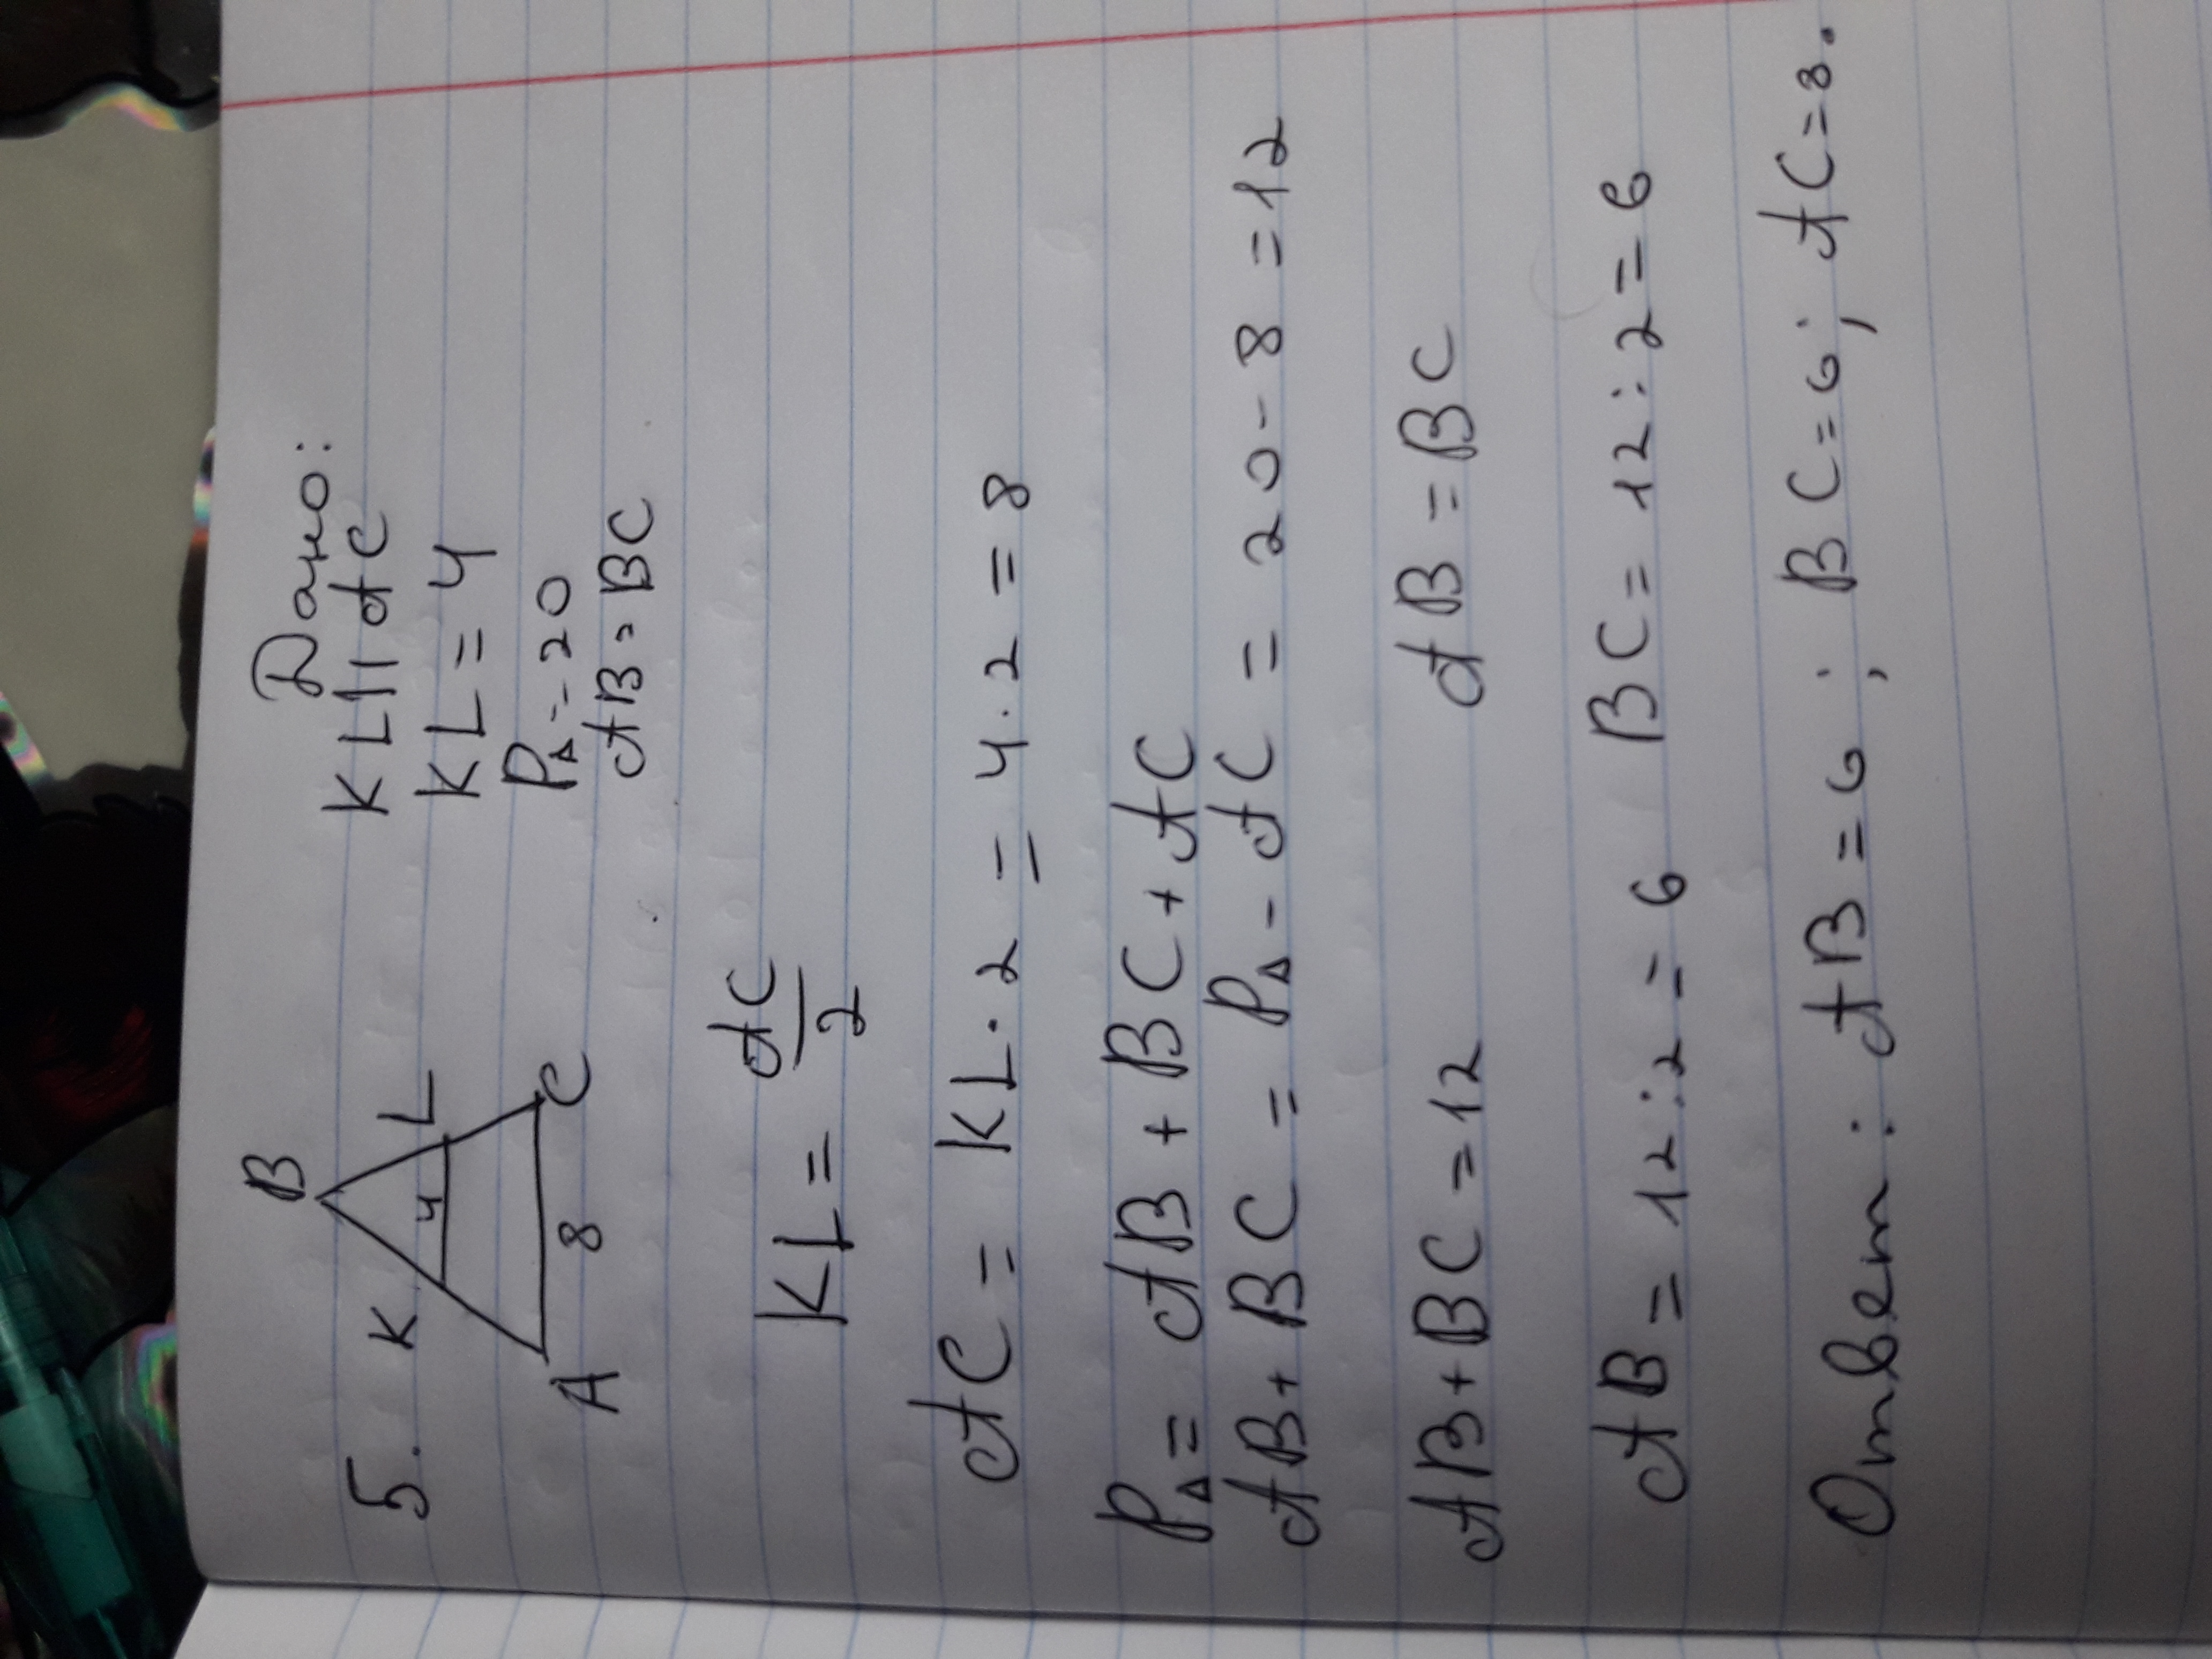 5.
B
K L
4
A 8 C
Дано:
KL || AC
KL = 4
P△ = 20
AB = BC
KL = AC/2
AC = KL · 2 = 4 · 2 = 8
P△ = AB + BC + AC
AB + BC = P△ - AC = 20 - 8 = 12
AB + BC = 12 AB = BC
AB = 12 : 2 = 6 BC = 12 : 2 = 6
Ответ: AB = 6 ; BC = 6 ; AC = 8.